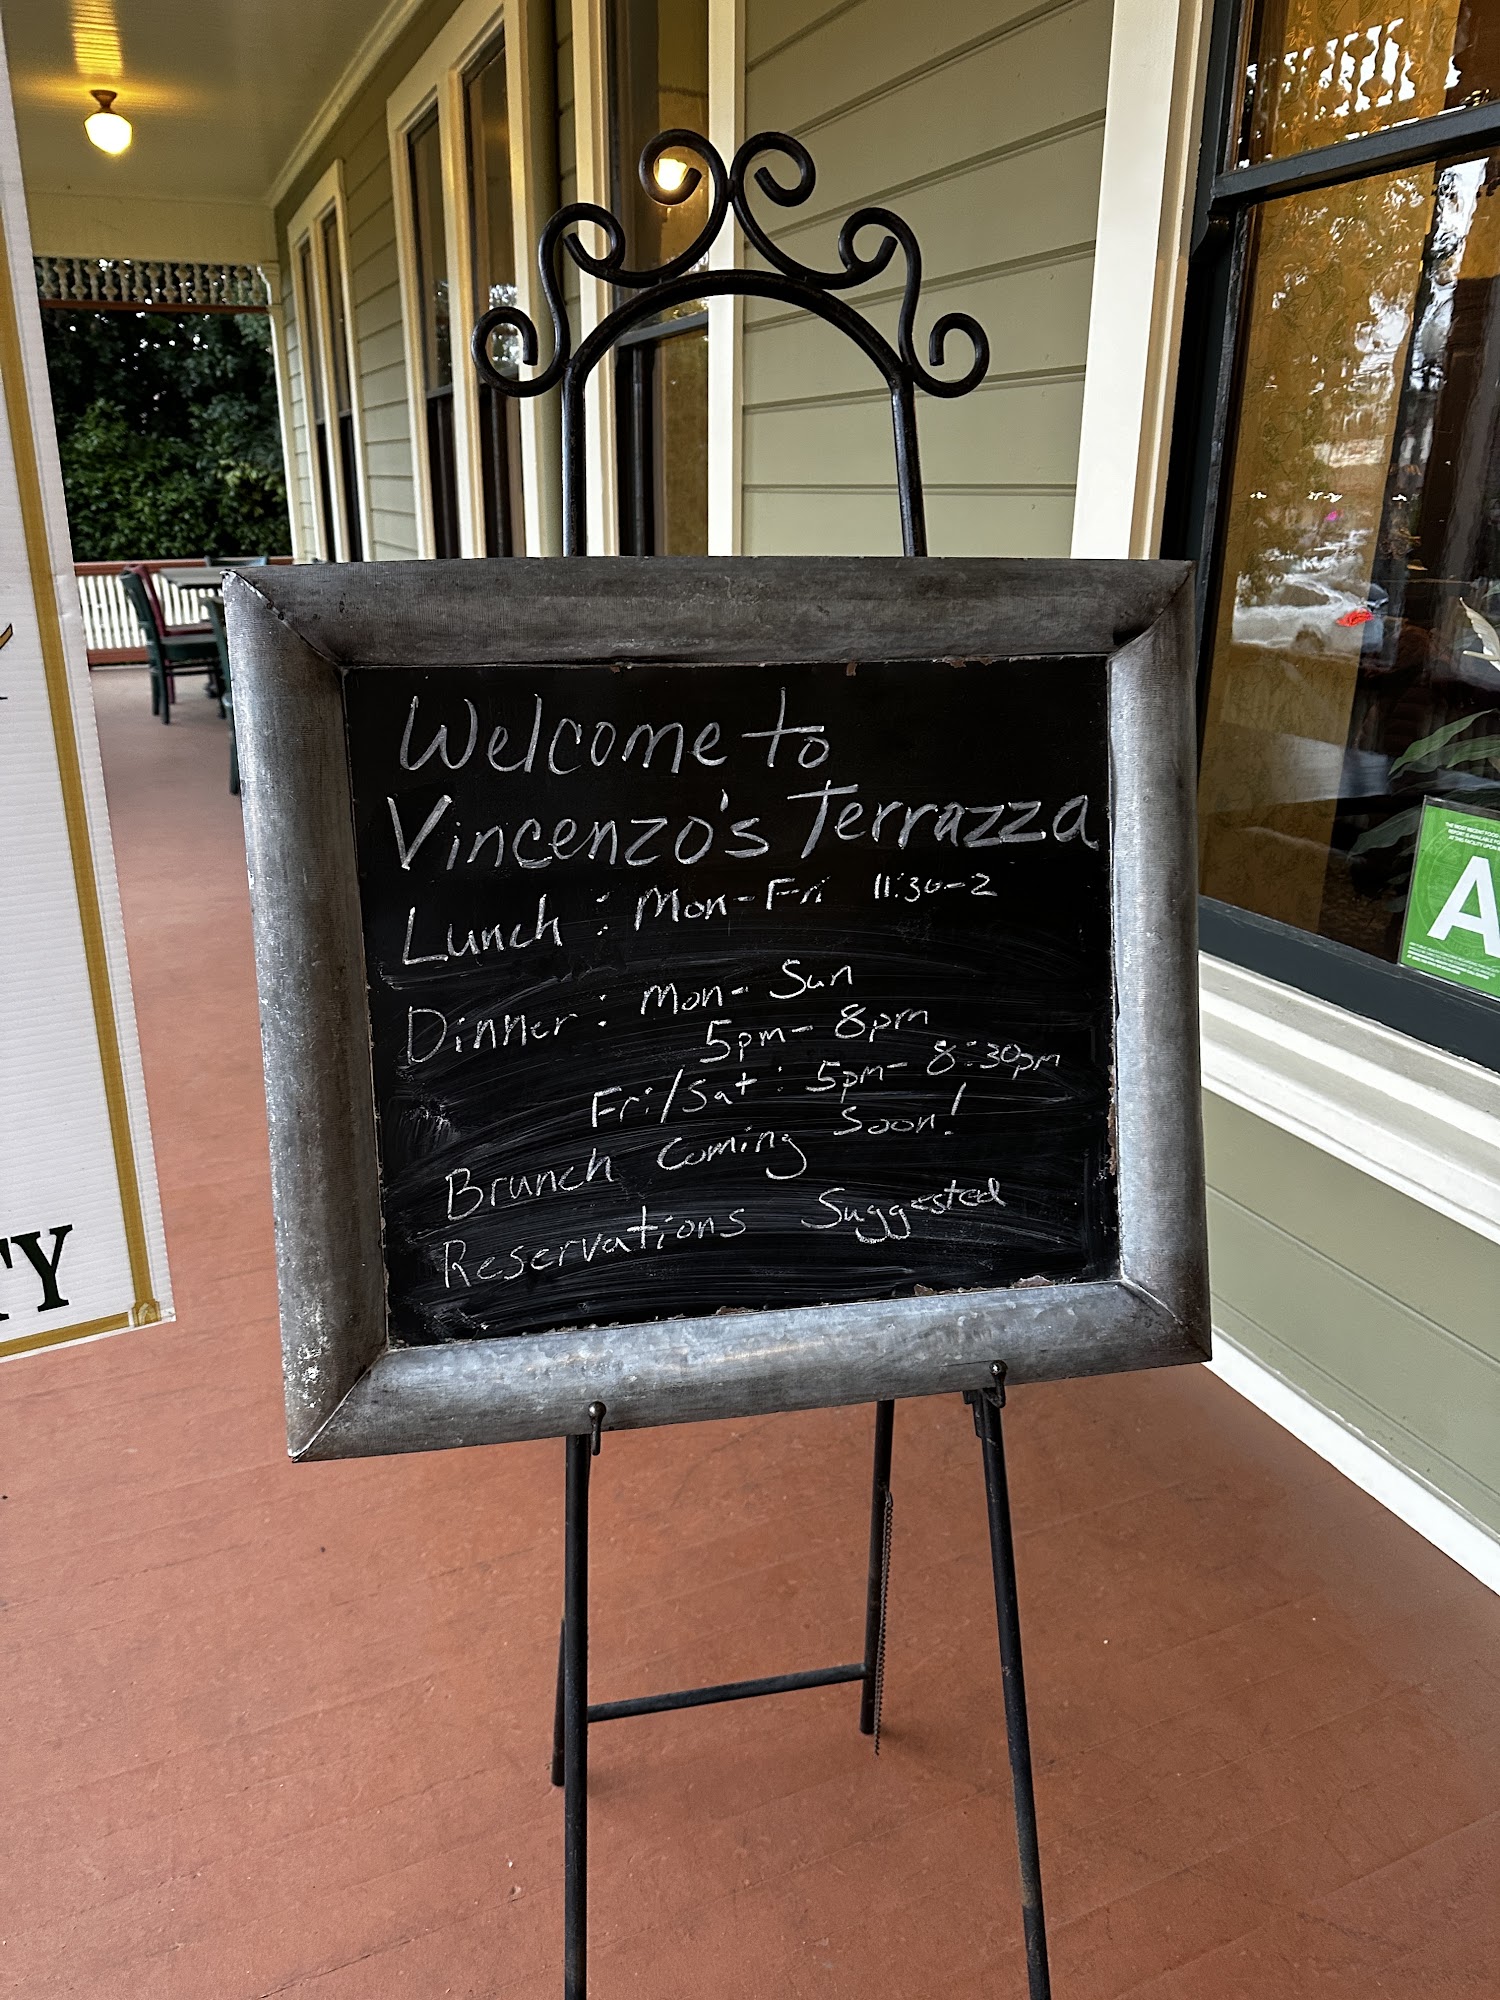 Welcome to
Vincenzo's Terrazza
Lunch : Mon-Fri 11:30-2
Dinner : Mon- Sun
5pm- 8pm
Fri/Sat : 5pm- 8:30pm
Brunch Coming Soon!
Reservations Suggested
TY
A